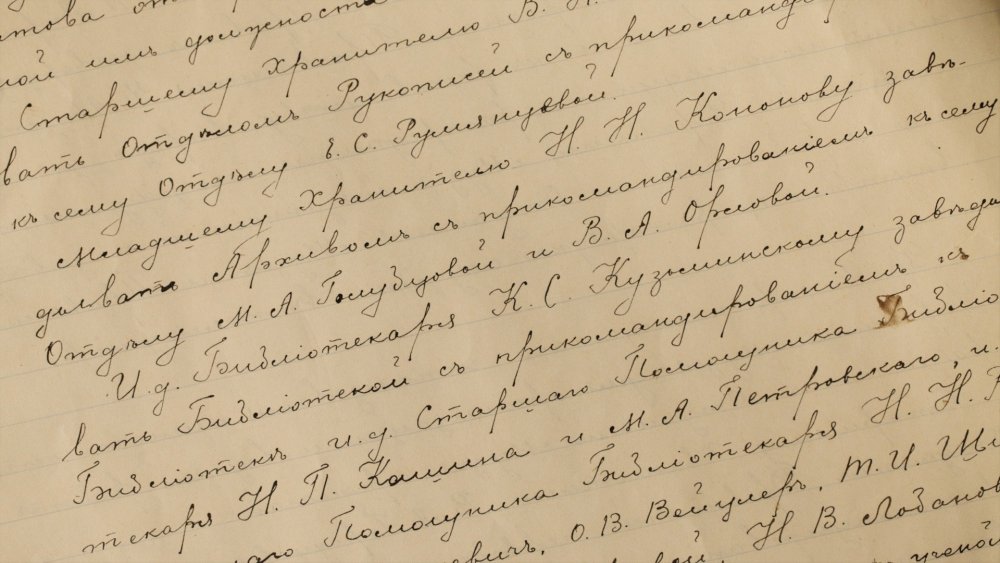 ной имъ должност
Старшему Хранителю В.
вать Отдѣломъ Рукописей съ прикоманд
къ сему Отдѣлу Е. С. Румянцевой.
Младшему Хранителю Н. Н. Кононову завѣ-
дывать Архивомъ съ прикомандированіемъ къ сему
Отдѣлу М. А. Голубцовой и В. А. Орловой.
И. д. Библіотекаря К. С. Кузьминскому завѣды
вать Библіотекой съ прикомандированіемъ къ
Библіотекѣ и. д. Старшаго Помощника Библіо
текаря Н. П. Кашина и М. А. Петровскаго, и.
аго Помощника Библіотекаря Н. Н.
евичъ, О. В. Вейцлеръ, Т. И. Щи
вой Н. В. Лобанов
ученой